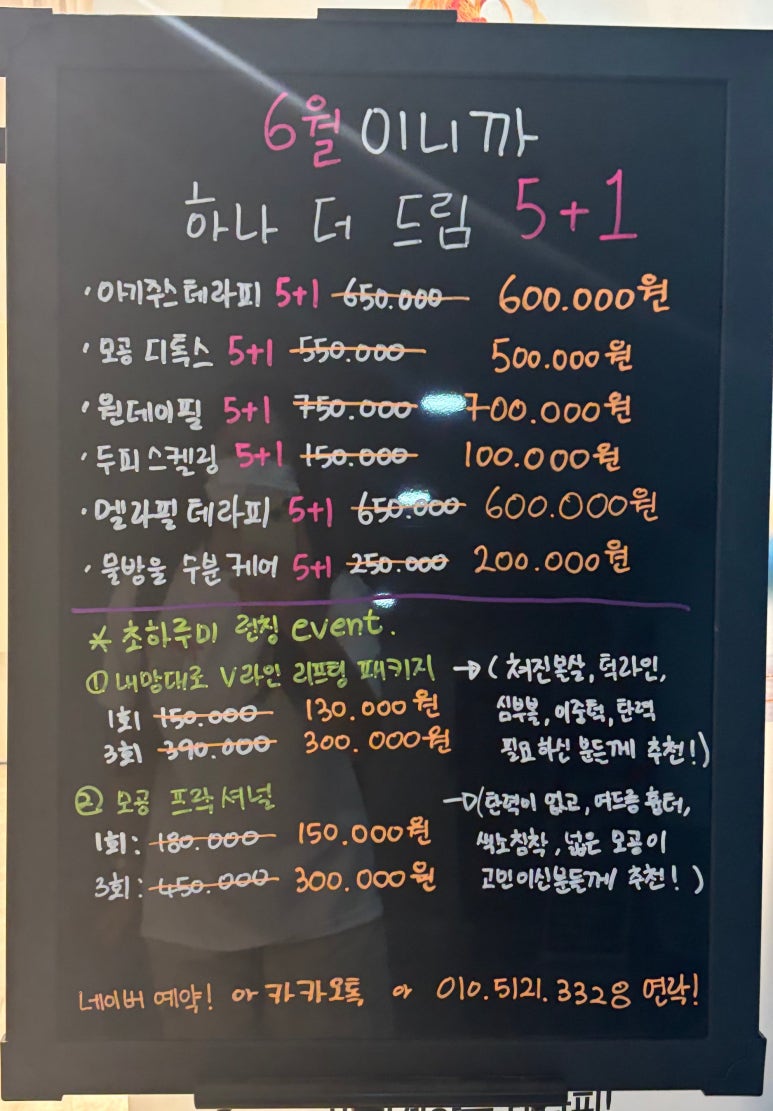 6월이니까
하나 더 드림 5+1
· 아기주스테라피 5+1 650.000 600.000원
· 모공 디톡스 5+1 550.000 500.000원
· 원데이필 5+1 750.000 700.000원
· 두피스켈링 5+1 150.000 100.000원
· 멜라필테라피 5+1 650.000 600.000원
· 물방울 수분케어 5+1 250.000 200.000원
* 초하루미 런칭 event.
① 내맘대로 V라인 리프팅 패키지 → (처진볼살, 턱라인,
1회 150.000 130.000원 심부볼, 이중턱, 탄력
3회 390.000 300.000원 필요하신 분들께 추천!)
② 모공 프락셔널 → (탄력이 없고, 여드름 흉터,
1회: 180.000 150.000원 색소침착, 넓은 모공이
3회: 450.000 300.000원 고민이신분들께 추천! )
네이버 예약! or 카카오톡 or 010.5121.3328 연락!